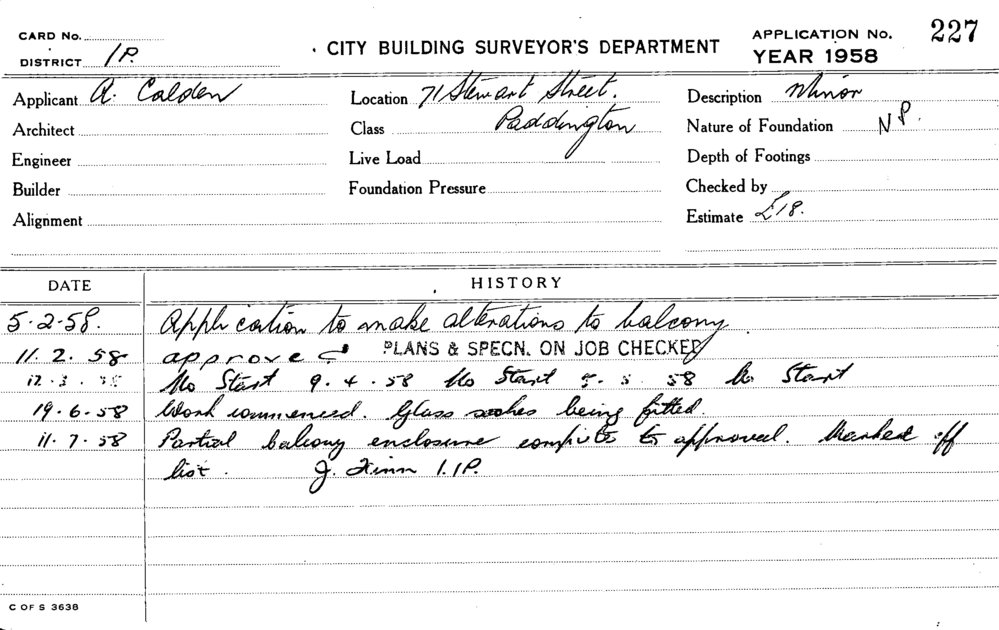 CARD No.
DISTRICT 1P.
CITY BUILDING SURVEYOR'S DEPARTMENT
APPLICATION No. 227
YEAR 1958
Applicant A. Calden
Location 71 Stewart Street.
Description Minor
Architect
Class Paddington
Nature of Foundation NP.
Engineer
Live Load
Depth of Footings
Builder
Foundation Pressure
Checked by
Alignment
Estimate £18.
DATE
HISTORY
5.2.58. Application to make alterations to balcony
11.2.58 approved PLANS & SPECN. ON JOB CHECKED
No Start 9.4.58 No Start 58 No Start
19.6.58 Work commenced. Glass sashes being fitted.
11.7.58 Partial balcony enclosure complete to approval. Marked off
list. J. Finn 1.1P.
C OF S 3638